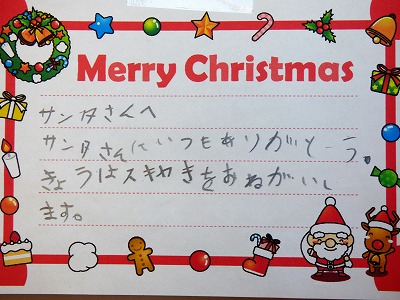 Merry Christmas
サンタさんへ
サンタさんにいつもありがとーう。
きょうはスキやきをおねがいし
ます。